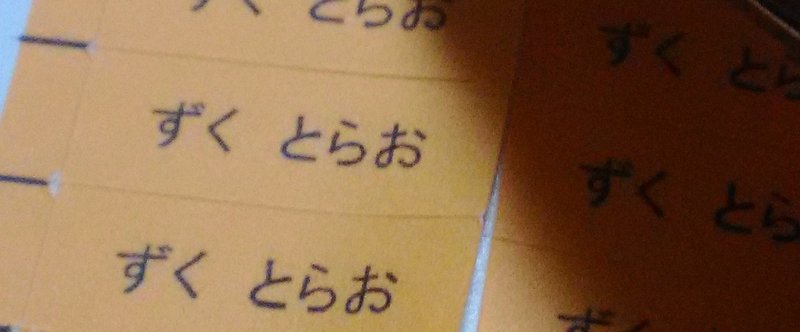 ずく とらお
ずく とらお
ずく とらお
ずく とら
ずく とら